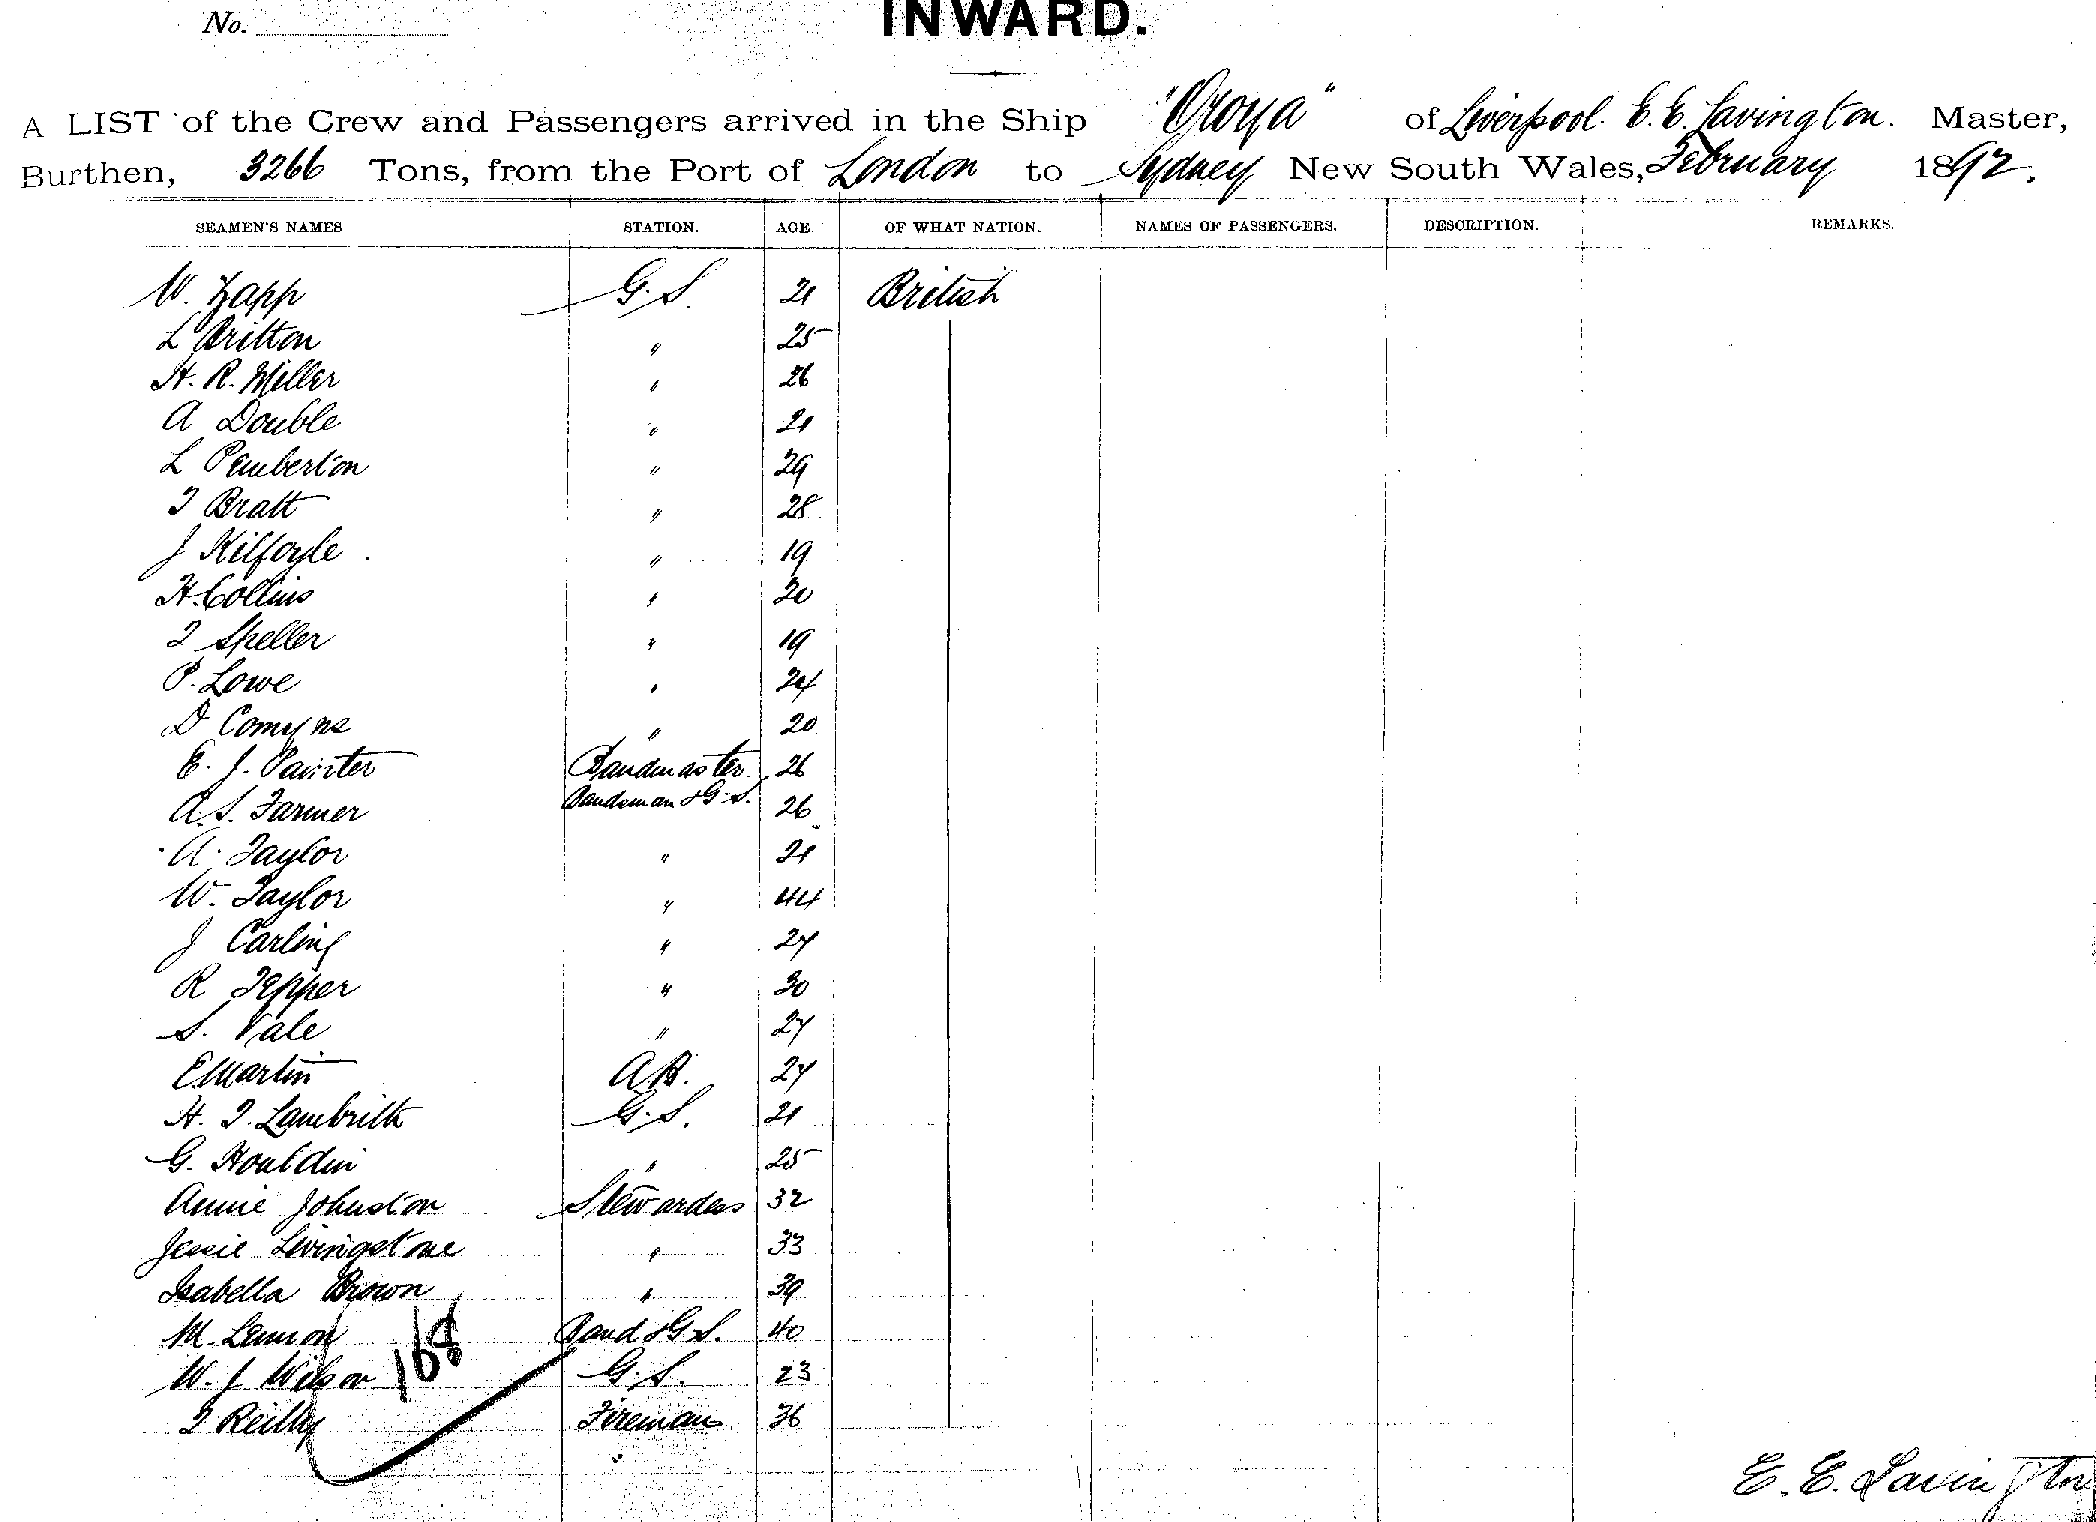 No.
INWARD.
A LIST of the Crew and Passengers arrived in the Ship "Oroya" of Liverpool. E. E. Lavington. Master,
Burthen, 3266 Tons, from the Port of London to Sydney New South Wales, February 1892.
SEAMEN'S NAMES STATION. AGE. OF WHAT NATION. NAMES OF PASSENGERS. DESCRIPTION. REMARKS.
W. Zapp G.S. 21 British
L Britton " 25
H. R. Miller " 26
A Double " 21
L Pemberton " 29
T Bratt " 28
J Kilfoyle " 19
H. Collins " 20
T Speller " 19
P. Lowe " 24
D Comyns " 20
E. J. Painter Bandmaster 26
A.S. Farmer Bandsman & G.S. 26
A. Taylor " 21
W. Taylor " 44
J Carling " 27
R Tepper " 30
S. Vale " 27
E Martin A.B. 27
H. T. Lambrith G.S. 21
G. Houldin " 25
Annie Johnston Stewardess 32
Jessie Livingstone " 33
Isabella Brown " 39
M. Lennon Band & G.S. 40
168
W. J Wilson G.S. 23
T Reilly Fireman 36
E. E. Lavington